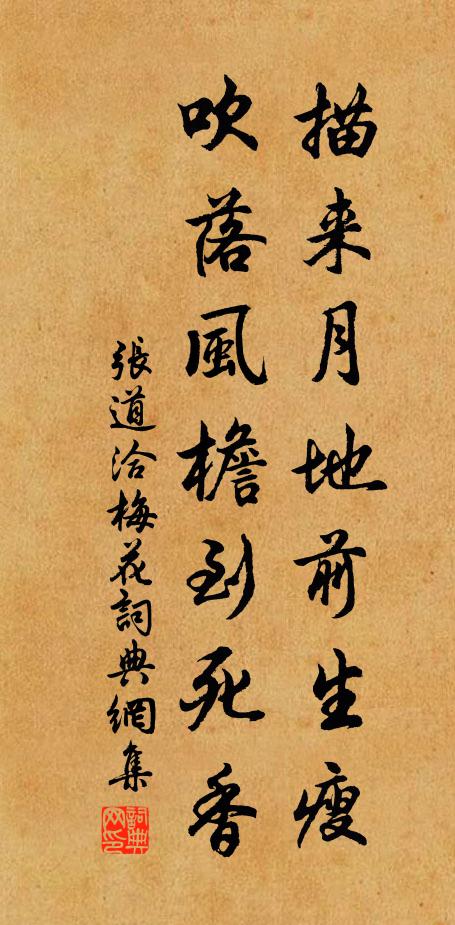 描来月地前生瘦
吹落風檐到死香
張道洽梅花詞典網集
詞典網印